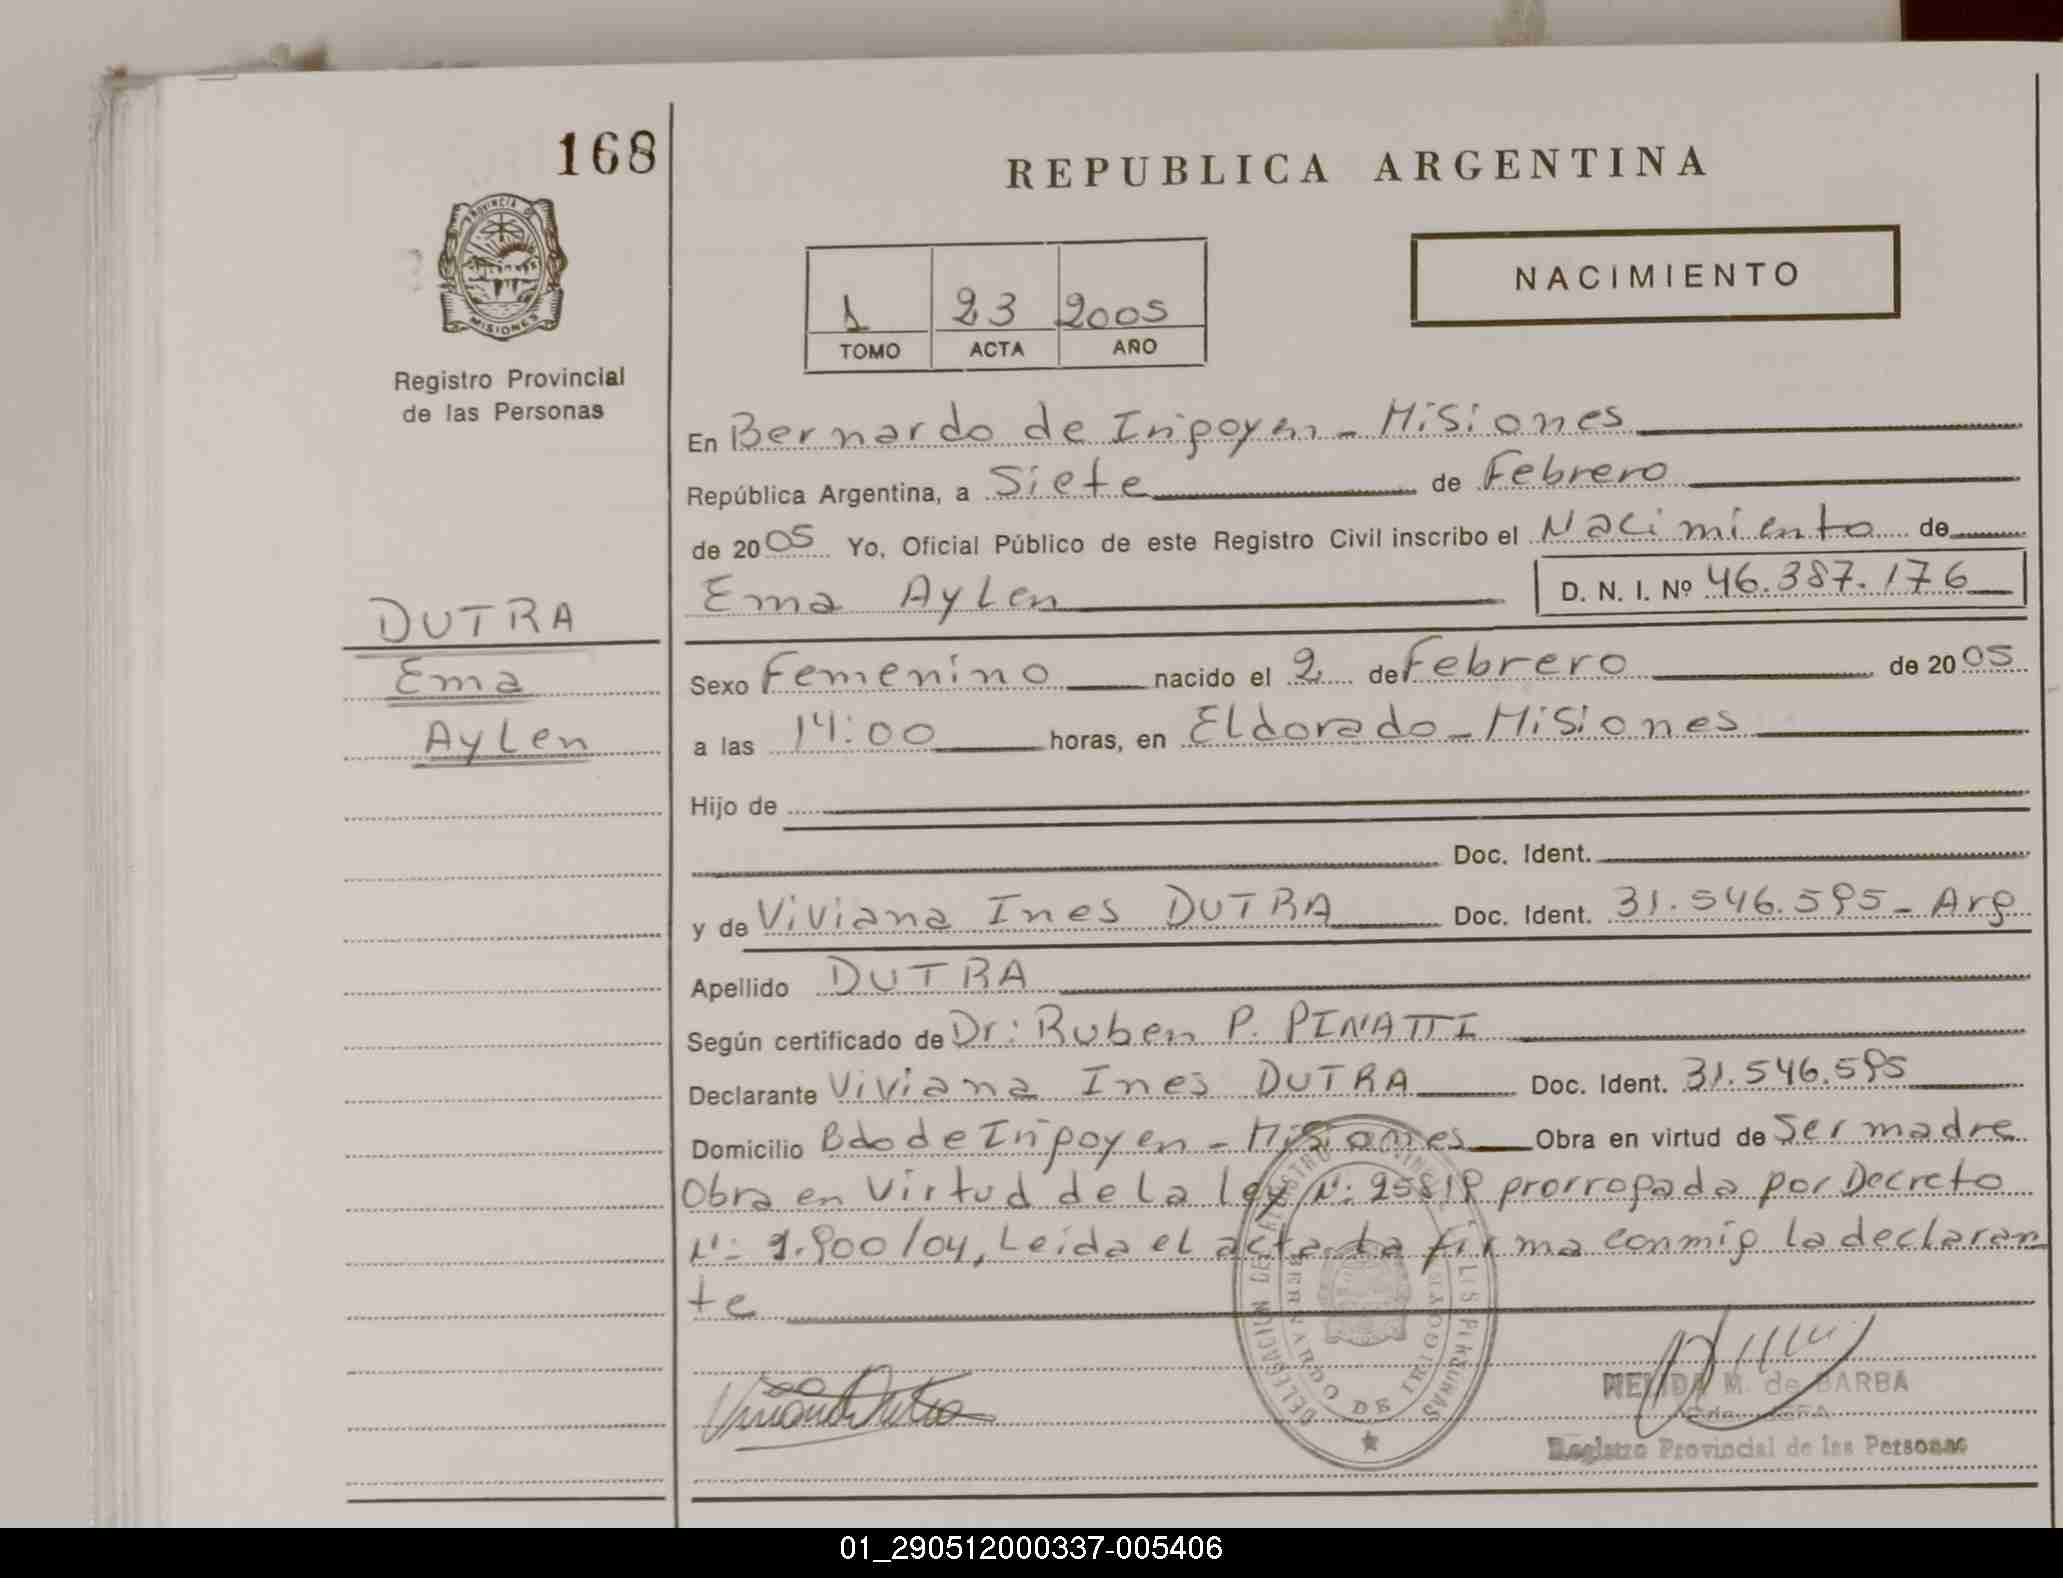 168
REPUBLICA ARGENTINA
PROVINCIA DE
MISIONES
NACIMIENTO
1 23 2005
TOMO ACTA AÑO
Registro Provincial
de las Personas
En Bernardo de Irigoyen - Misiones
República Argentina, a Siete de Febrero
de 2005 Yo, Oficial Público de este Registro Civil inscribo el Nacimiento de
Ema Aylen D. N. I. Nº 46.387.176
DUTRA
Ema
Aylen
Sexo Femenino nacido el 2 de Febrero de 2005
a las 14:00 horas, en Eldorado - Misiones
Hijo de
Doc. Ident.
y de Viviana Ines DUTRA Doc. Ident. 31.546.595 - Arg
Apellido DUTRA
Según certificado de Dr: Ruben P. PINATTI
Declarante Viviana Ines DUTRA Doc. Ident. 31.546.595
Domicilio Bdo de Irigoyen - Misiones Obra en virtud de Ser madre
Obra en Virtud de La Ley Nº: 25819 prorrogada por Decreto
Nº: 1.900/04, Leida el acta La firma conmigo La declaran
te
DELEGACION DEL REGISTRO PROVINCIAL DE LAS PERSONAS
BERNARDO DE IRIGOYEN
NELIDA M. de BARBA
Registro Provincial de las Personas
01_290512000337-005406